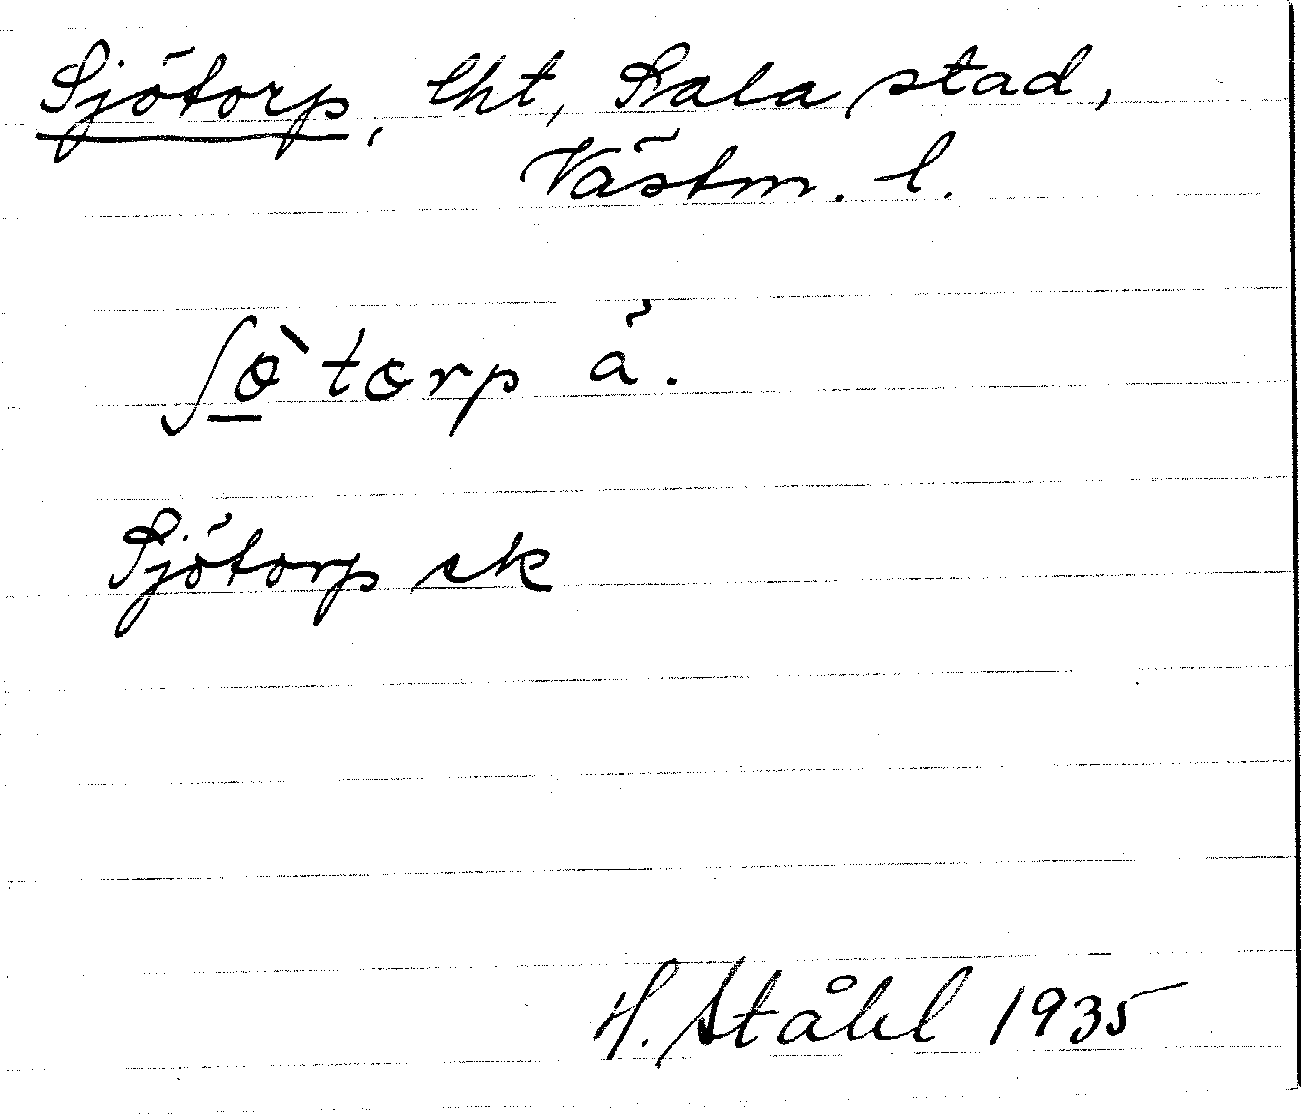 Sjötorp, lht, Sala stad,
Västm. l.
ʃò̱ tɷrp ä.
Sjötorp ek
H. Ståhl 1935